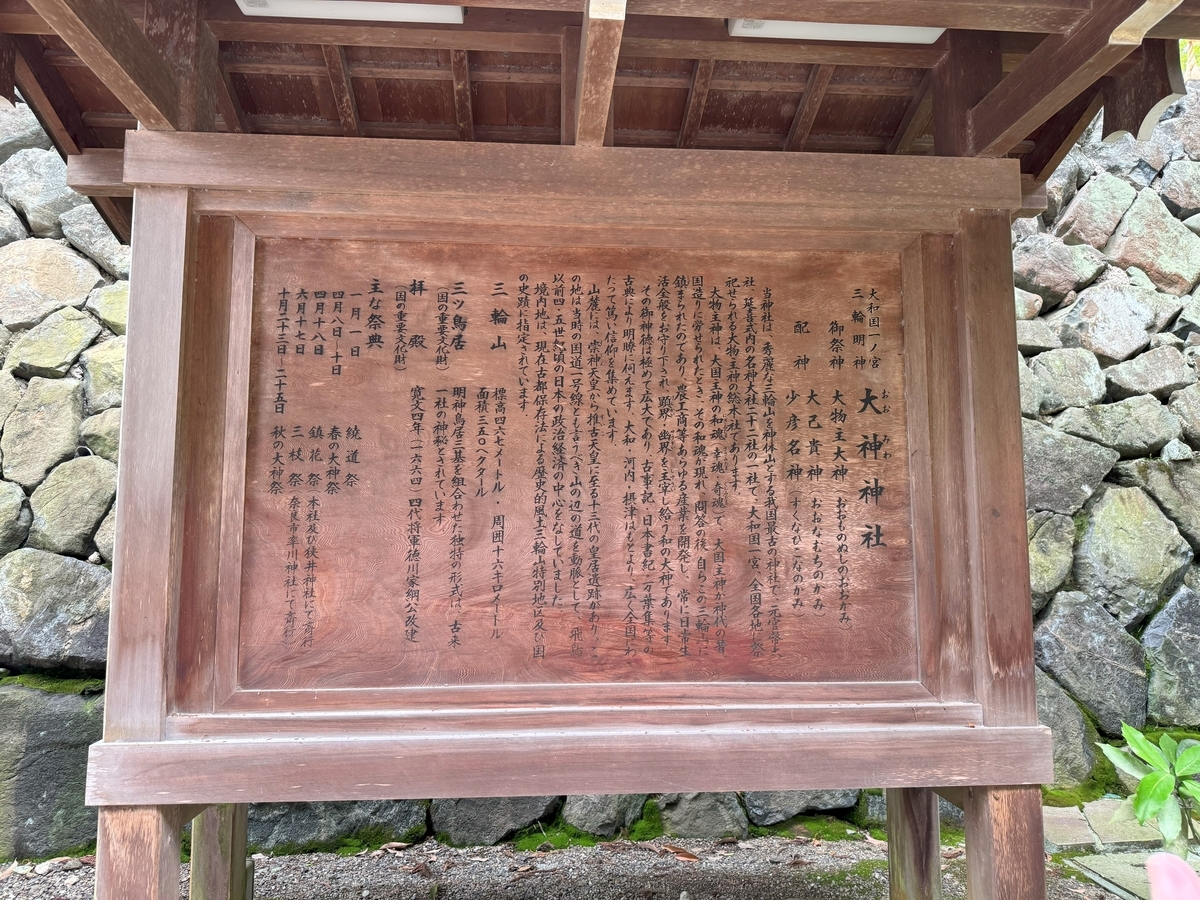 大和国一ノ宮
三輪明神
大神神社
おお みわ
御祭神 大物主大神（おおものぬしのおおかみ）
大己貴神（おおなむちのかみ）
配神 少彦名神（すくなひこなのかみ）
当神社は、秀麗な三輪山を神体山とする我国最古の神社で、元官幣大
社、延喜式内の名神大社二十二社の一社で、大和国一宮、全国各地に祭
祀せられる大物主神の総本社であります。
大物主神は、大国主神の和魂（幸魂、奇魂）で、大国主神が神代の昔、
国造りに労せられたとき、その和魂が現れ、問答の後、自らこの三輪山に
鎮まられたのであり、農工商等あらゆる産業を開発し、常に日常生
活全般をお守り下され、顕界・幽界を主宰し給う和の大神であります。
その御神徳は極めて広大であり、古事記、日本書紀、万葉集等の
古典により明瞭に伺えます。大和、河内、摂津はもとより、広く全国にわ
たって篤い信仰を集めています。
山麓には、崇神天皇から推古天皇に至る十三代の皇居遺跡があり、こ
の地は当時の国道一号線とも言うべき山の辺の道を動脈として、飛鳥
以前四・五世紀頃の日本の政治経済の中心をなしていました。
境内地は、現在古都保存法による歴史的風土三輪山特別地区及び国
の史跡に指定されています。
三輪山 標高四六七メートル・周囲十六キロメートル
面積三五〇ヘクタール
三ツ鳥居 明神鳥居三基を組合わせた独特の形式は、古来
（国の重要文化財） 一社の神秘とされています。
拝殿 寛文四年（一六六四）四代将軍徳川家綱公改建
（国の重要文化財）
主な祭典
一月一日 繞道祭
四月八日～十日 春の大神祭
四月十八日 鎮花祭 本社及び狭井神社にて斉行
六月十七日 三枝祭（奈良市率川神社にて斉行）
十月二十三日～二十五日 秋の大神祭